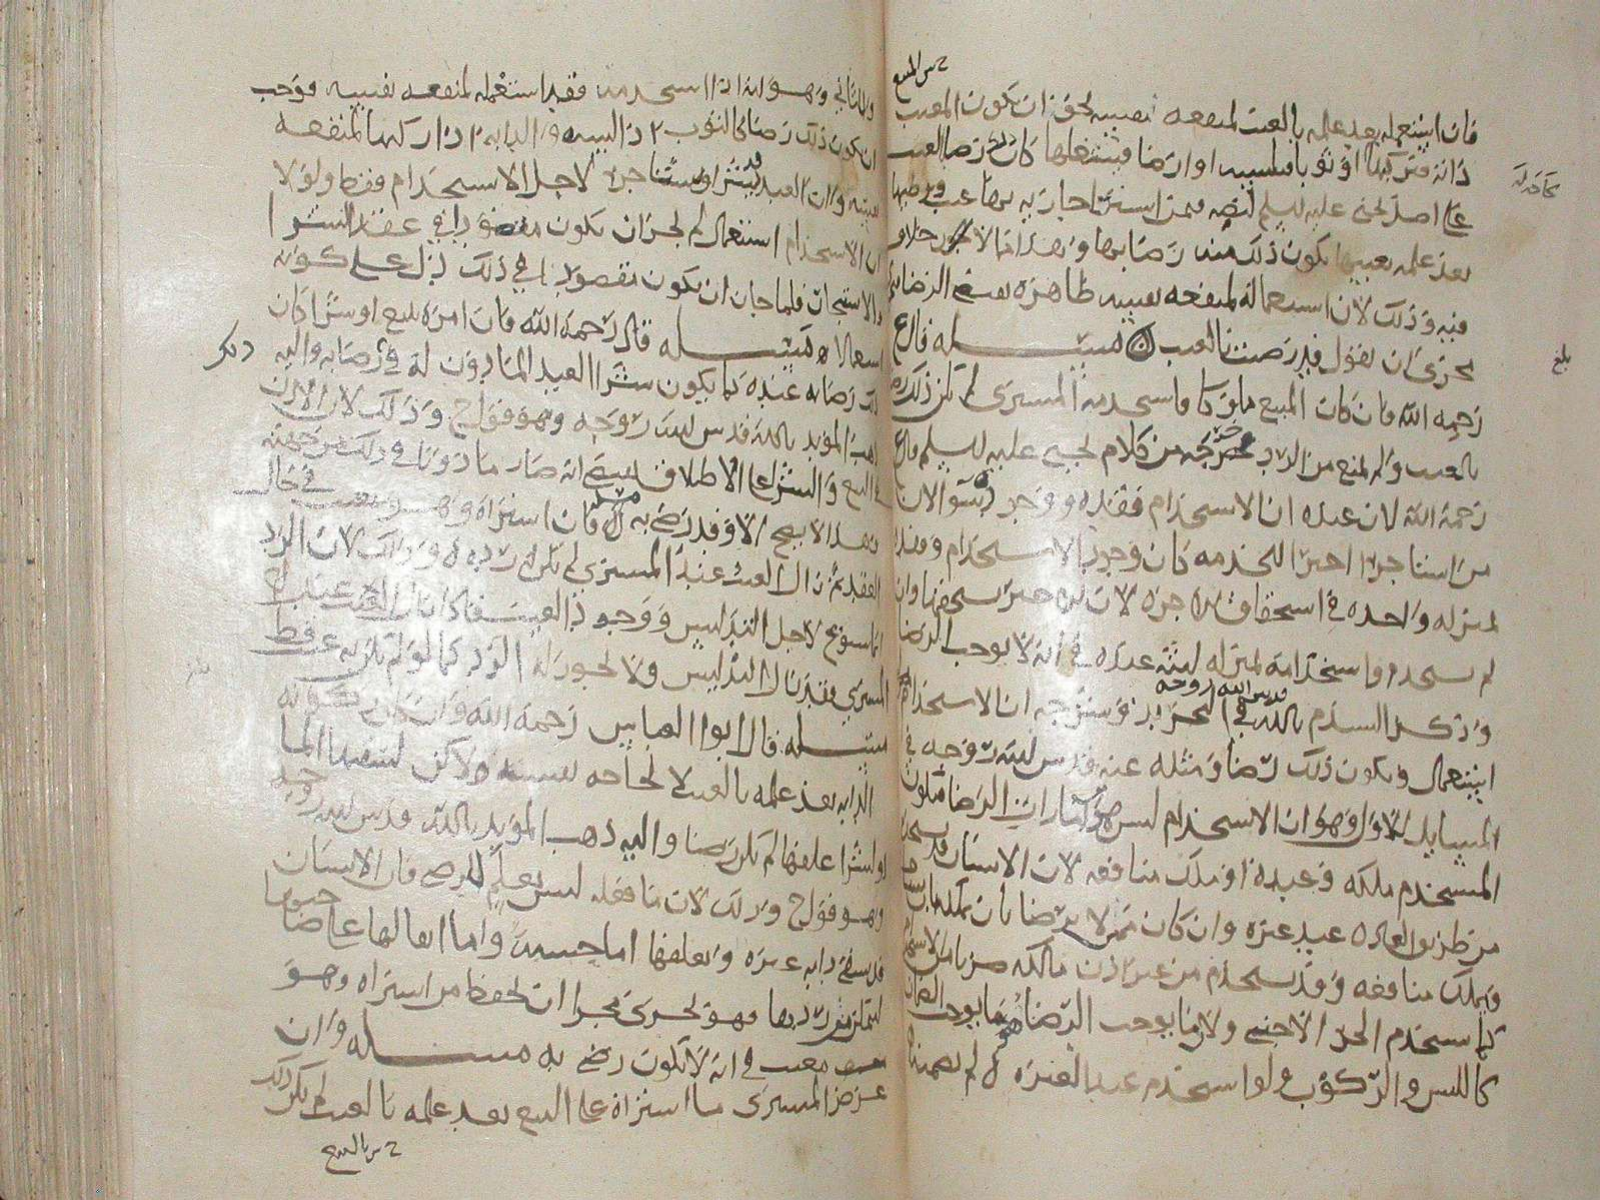 فان استعمله بعد علمه بالعيب لمنفعه نفسه نحو ان يكون المعيب
دابة فتركبها او ثوبا فيلبسه او ارضا فيشغلها كان ذلك رضا بالعيب
على اصل يحيى عليه السلم
بعد علمه بعيبها يكون ذلك منه رضا بها وهذا مما لا خلاف
فيه وذلك لان استعماله لمنفعه نفسه ظاهره يقتضي الرضا
يجري ان يقول قد رضيت بالعيب مسئله قال
رحمه الله فان كان المبيع مملوكا واستخدمه المشتري لم يكن ذلك رضا
بالعيب ولم يمنع من الرد خرجه من كلام يحيى عليه السلم قال
رحمه الله لان عنده ان الاستخدام وفقده ووجوده سوآ لان
من استاجر اجيرا للخدمه كان وجود الاستخدام وفقده
بمنزله واحده في استحقاق الاجره لان الاجير يستحقها وان
لم يستخدم واستخدامه بمنزله لبثه عنده في انه لا يوجب الرضا
وذكر السيد م بالله قدس الله روحه في التحرير ان الاستخدام
استعمال ويكون ذلك رضا ومثله عنه قدس الله روحه في
المسايل الاول وهو ان الاستخدام ليس من امارات الرضا فيكون
المستخدم ملكه وعبده او ملك منافعه لان الانسان قد يستخدم
من طريق العاده عبد غيره وان كان ممن لا يرضا بان يملكه
ويملك منافعه وقد يستخدم من غير اذن مالكه
كما يستخدم الحر الاجنبي ولان ما يوجب الرضا هو ما يوجب الضمان
كاللبس والركوب ولو استخدم عبد الغير لم يضمنه
وللثاني وهو انه اذا استخدمه فقد استعمله لمنفعه نفسه فوجب
ان يكون ذلك رضا كالثوب اذا لبسه والدابه اذا ركبها لمنفعه
نفسه ولان العبد قد يشترا ويستاجر لاجل الاستخدام فقط ولولا
ان الاستخدام استعمال لم يجز ان يكون مقصودا في عقد الشرا
والاستيجار فلما جاز ان يكون مقصودا في ذلك دل على كونه
استعمالا مسئله قال رحمه الله فان امره ببيع او شرا كان
ذلك رضا به عنده كما يكون شرا العبد الماذون له في رضا به واليه
ذهب المؤيد بالله قدس الله روحه وهو قول ح وذلك لان الاذن
في البيع والشرا على الاطلاق يقتضي انه صار ماذونا في ذلك من جهته
وهذا لا يصح الا وقد رضي به مسئله فان اشتراه وهو معيب في حال
العقد ثم زال العيب عند المشتري لم يكن له رده وذلك لان الرد
انما يسوغ لاجل التدليس ووجود العيب فاذا زال العيب عند
المشتري فقد زال التدليس ولا يجوز له الرد كما لو لم يكن به عيب قط
مسئله قال ابو العباس رحمه الله وان كان ركوبه
الدابه بعد علمه بالعيب لا لحاجه نفسه ولاكن ليسقيها الما
او ليشرا علفها لم يكن رضا واليه ذهب المؤيد بالله قدس الله روحه
وهو قول ح وذلك لان ما فعله ليس بعلم للرضى فان الانسان
قد يسقي دابه غيره ويعلفها اما حسبة واما ابقا لها على صاحبها
ليتمكن من ردها فهو يجري مجرا ان يحفظ من اشتراه وهو
معيب في انه لا يكون رضى به مسئله وان
عرض المشتري ما اشتراه على البيع بعد علمه بالعيب لم يكن ذلك
بلغ